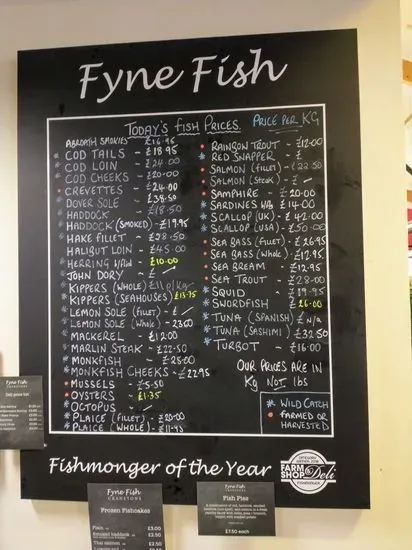 Fyne Fish
TODAY'S FISH PRICES. PRICE PER KG
ABROATH SMOKIES £16.95
COD TAILS - £18.95
COD LOIN - £24.00
COD CHEEKS - £20.00
CREVETTES - £24.00
DOVER SOLE - £38.50
HADDOCK - £18.50
HADDOCK (SMOKED) - £19.95
HAKE FILLET - £28.50
HALIBUT LOIN - £45.00
HERRING £10.00
JOHN DORY - £
KIPPERS (WHOLE) £11 p/kg
KIPPERS (SEAHOUSES) £13.75
LEMON SOLE (Fillet) - £
LEMON SOLE (Whole) - 23.00
MACKEREL - £12.00
MARLIN STEAK - £22.50
MONKFISH - £28.00
MONKFISH CHEEKS - £22.95
MUSSELS - £5.50
OYSTERS - £1.35
OCTOPUS - /
PLAICE (FILLET) - £20.00
PLAICE (WHOLE) - £11.45
RAINBOW TROUT - £12.00
RED SNAPPER - £
SALMON (fillet) - £22.50
SALMON (Steak) - £
SAMPHIRE - £20.00
SARDINES - £14.00
SCALLOP (UK) - £42.00
SCALLOP (USA) - £50.00
SEA BASS (Fillet) - £26.95
SEA BASS (Whole) - £12.95
SEA BREAM - £12.95
SEA TROUT - £28.00
SQUID - £19.95
SWORDFISH - £26.00
TUNA (SPANISH) £N/a
TUNA (SASHIMI) £32.50
TURBOT - £16.00
OUR PRICES ARE IN
Kg NOT lbs
* WILD CATCH
• FARMED OR
HARVESTED
Fishmonger of the Year
FARM
SHOP & Deli
Fyne Fish
Deli price list
Fyne Fish
Frozen Fishcakes
Plain £3.00
Smoked haddock £2.50
Thai salmon £2.50
Fyne Fish
Fish Pies
£7.50 each